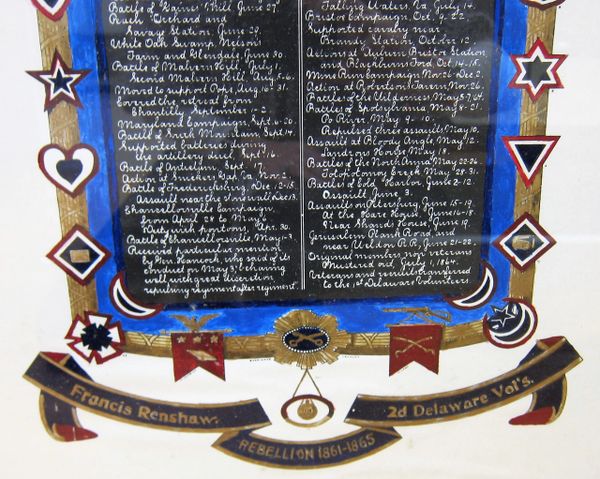 Battle of Gaines' Hill, June 27.
Peach Orchard and
Savage Station, June 29.
White Oak Swamp, Nelson
Farm and Glendale, June 30.
Battle of Malvern Hill, July 1.
Second Malvern Hill, Aug. 5-6.
Moved to support Pope, Aug. 16-31.
Covered the retreat from
Chantilly September 1-2.
Maryland Campaign, Sept. 6-20.
Battle of South Mountain, Sept. 14.
Supported batteries during
the artillery duel, Sept. 16.
Battle of Antietam, Sept.
Action at
Battle of Fredericksburg, Dec. 12-15.
Assault near the stone wall Dec. 13.
Chancellorsville Campaign,
from April 28 to May 6
Duty with pontoons, Apr. 30.
Battle of Chancellorsville, May 1-5
Received particular mention
by Gen. Hancock, who said of its
conduct on May 3, "behaving
well with great discretion
repulsing regiment after regiment."
Falling Waters, Va., July 14.
Bristoe Campaign, Oct. 9-22.
Supported cavalry near
Brandy Station, October 12.
Actions at Auburn, Bristoe Station
and Blackburns Ford, Oct. 14-15.
Mine Run Campaign, Nov. 26-Dec. 2.
Action at Robertsons Tavern, Nov. 26.
Battles of the Wilderness, May 5-7, 64.
Battles of Spotsylvania, May 8-21.
Po River, May 9-10.
Repulsed three assaults, May 10.
Assault at Bloody Angle, May 12.
Landrons House, May 18.
Battles of the North Anna, May 22-26.
Totopotomoy Creek, May 28-31.
Battles of Cold Harbor, June 2-12.
Assault June 3.
Assault on Petersburg, June 15-19.
At the Hare House, June 16-18.
Near Shands House, June 19.
Jerusalem Plank Road, and
near Weldon R.R., June 21-22.
Original members non veterans
Mustered out, July 1, 1864.
Veterans and recruits transferred
to the 1st Delaware Volunteers.
Francis Renshaw.
2d Delaware Vol's.
REBELLION 1861-1865